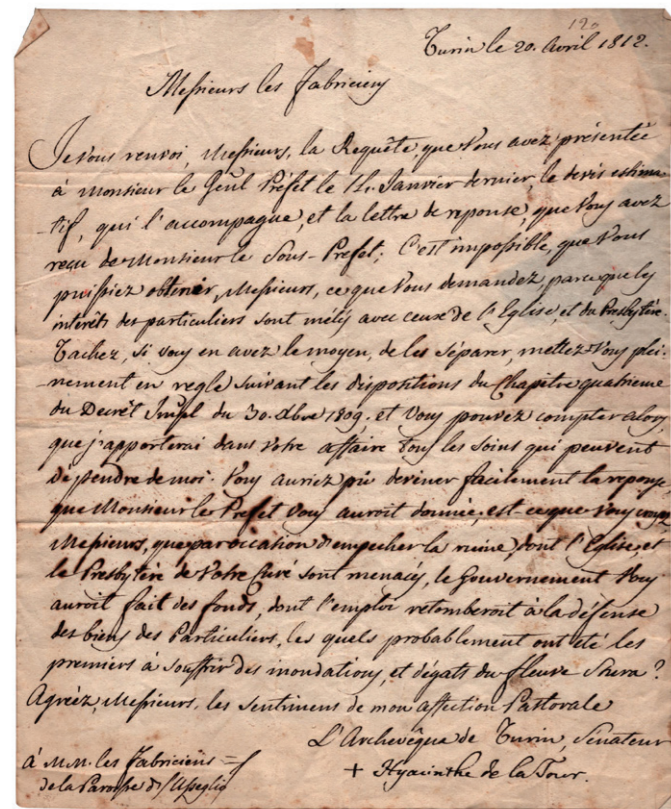 120
Turin le 20. Avril 1812.
Messieurs les Fabriciens
Je Vous renvoi, Messieurs, la Requête, que Vous avez présentée
à Monsieur le Geul Préfet le Janvier dernier, le devis estima-
tif, qui l'accompagne, et la lettre de reponse, que Vous avez
reçu de Monsieur le Sous-Prefet; C'est impossible, que Vous
puissiez obtenir, Messieurs, ce que Vous demandez, parceque les
interêts des particuliers sont mélés avec ceux de l'Eglise, et du Presbytère.
Tachez, si vous en avez le moyen, de les séparer, mettez-Vous plei-
-nement en regle suivant les dispositions du Chapitre quatrieme
du Decrèt Impl du 30. Xbre 1809. et Vous pouvez compter alors,
que j'apporterai dans Votre affaire tous les soins qui peuvent
dépendre de moi. Vous auriez pû deviner facilement la reponse,
que Monsieur le Prefet Vous auroit donnée; est ce que Vous
Messieurs, que par occasion d'empecher la ruine, dont l'Eglise, et
le Presbytère de Votre Curé sont menacés, le Gouvernement Vous
auroit fait des fonds, dont l'emploi retomberoit à la défense
des biens des Particuliers, les quels probablement ont été les
premiers à souffrir des inondations, et dégats du fleuve Stura?
Agréez, Messieurs, les sentimens de mon affection Pastorale
L'Archevêque de Turin, Sénateur
+ Hyacinthe de la Tour.
à M.M. les Fabriciens
de la Paroisse d'Usseglio